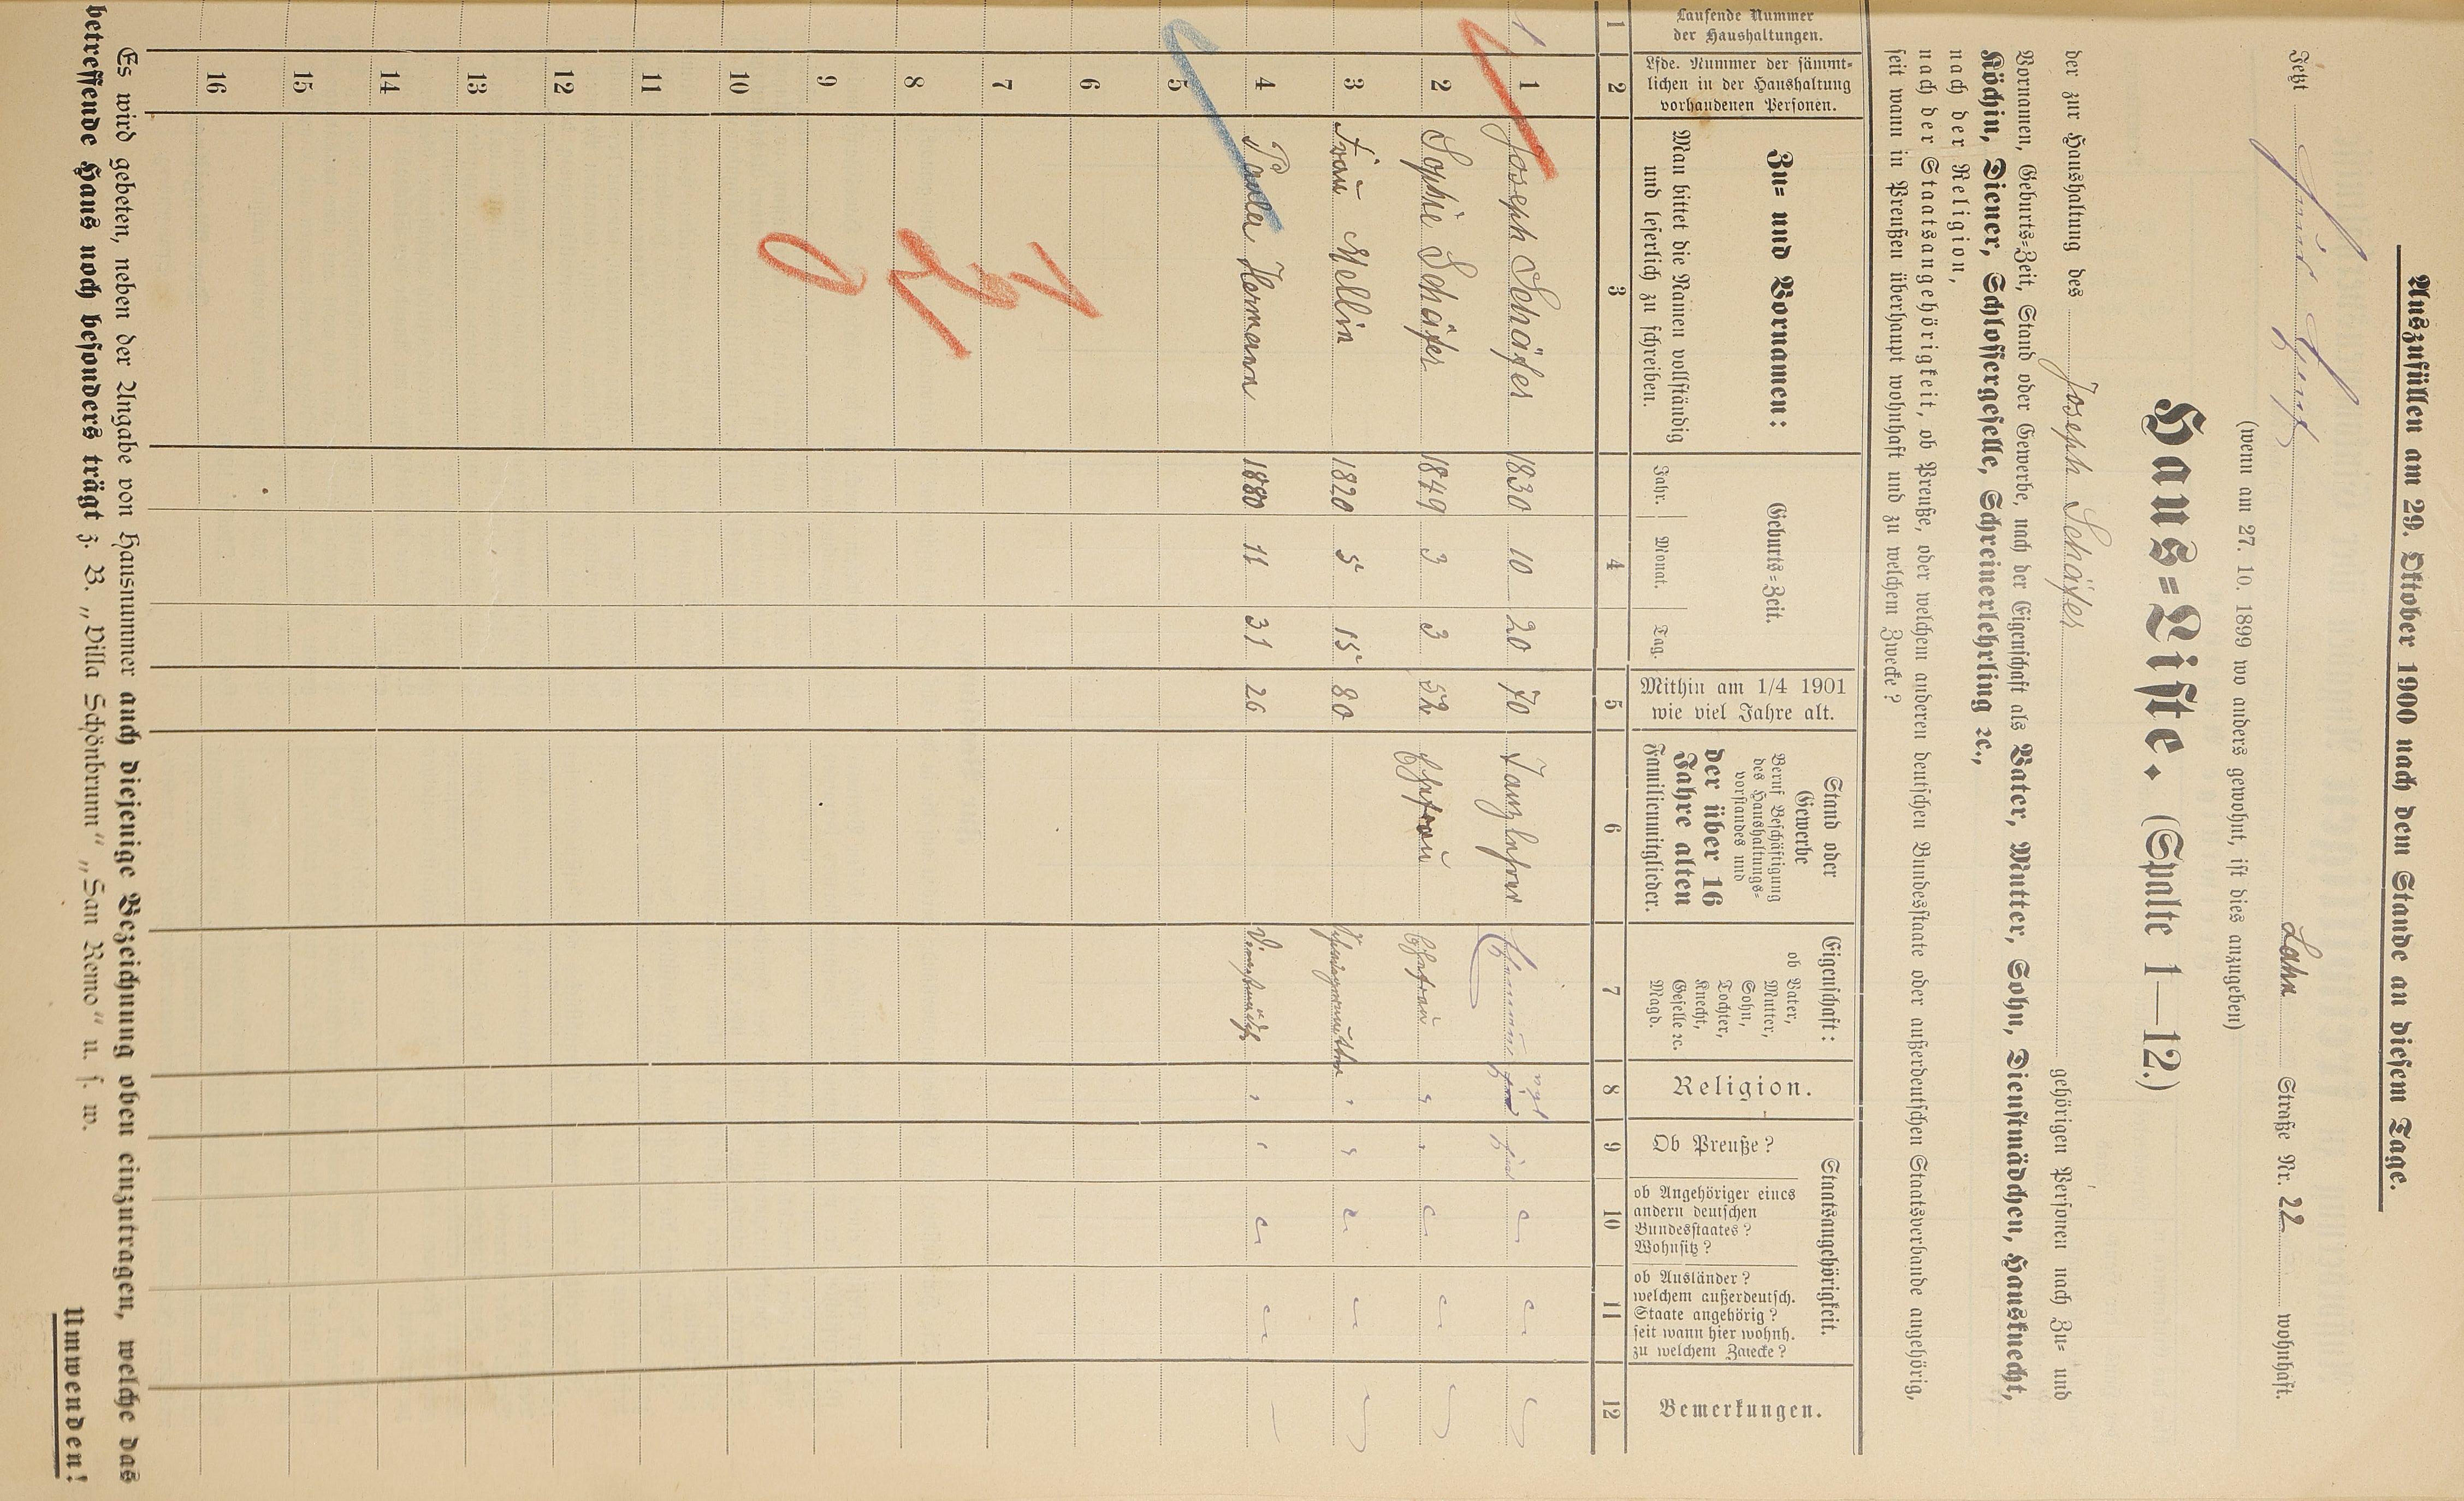 Auszufüllen am 29. Oktober 1900 nach dem Stande an diesem Tage.
Jetzt Lahn Straße Nr. 22 wohnhaft.
(wenn am 27. 10. 1899 wo anders gewohnt, ist dies anzugeben)
Haus=Liste. (Spalte 1—12.)
der zur Haushaltung des Joseph Schäfer gehörigen Personen nach Zu= und
Vornamen, Geburts=Zeit, Stand oder Gewerbe, nach der Eigenschaft als Vater, Mutter, Sohn, Dienstmädchen, Hausknecht,
Köchin, Diener, Schlossergeselle, Schreinerlehrling ꝛc.,
nach der Religion,
nach der Staatsangehörigkeit, ob Preuße, oder welchem anderen deutschen Bundesstaate oder außerdeutschen Staatsverbande angehörig,
seit wann in Preußen überhaupt wohnhaft und zu welchem Zwecke?
Laufende Nummer
der Haushaltungen.
Lfde. Nummer der sämmt=
lichen in der Haushaltung
vorhandenen Personen.
Zu= und Vornamen:
Man bittet die Namen vollständig
und leserlich zu schreiben.
Geburts=Zeit.
Jahr. Monat. Tag.
Mithin am 1/4 1901
wie viel Jahre alt.
Stand oder
Gewerbe
Beruf Beschäftigung
des Haushaltungs=
vorstandes und
der über 16
Jahre alten
Familienmitglieder.
Eigenschaft:
ob Vater,
Mutter,
Sohn,
Tochter,
Knecht,
Geselle ꝛc.
Magd.
Religion.
Staatsangehörigkeit.
Ob Preuße?
ob Angehöriger eines
andern deutschen
Bundesstaates?
Wohnsitz?
ob Ausländer?
welchem außerdeutsch.
Staate angehörig?
seit wann hier wohnh.
zu welchem Zwecke?
Bemerkungen.
1 2 3 4 5 6 7 8 9 10 11 12
1 1 Joseph Schäfer 1830 10 20 70 Tanzlehrer
2 Sophie Schäfer 1849 3 3 52 Ehefrau Ehefrau "
3 Frau Mellin 1820 5 15 80 Schwiegermutter "
4 Paula Hermann 1880 11 31 20 Dienstmädch "
5
6
7
8
9
10
11
12
13
14
15
16
Es wird gebeten, neben der Angabe von Hausnummer auch diejenige Bezeichnung oben einzutragen, welche das
betreffende Haus noch besonders trägt z. B. „Villa Schönbrunn" „San Remo" u. s. w.
Umwenden!